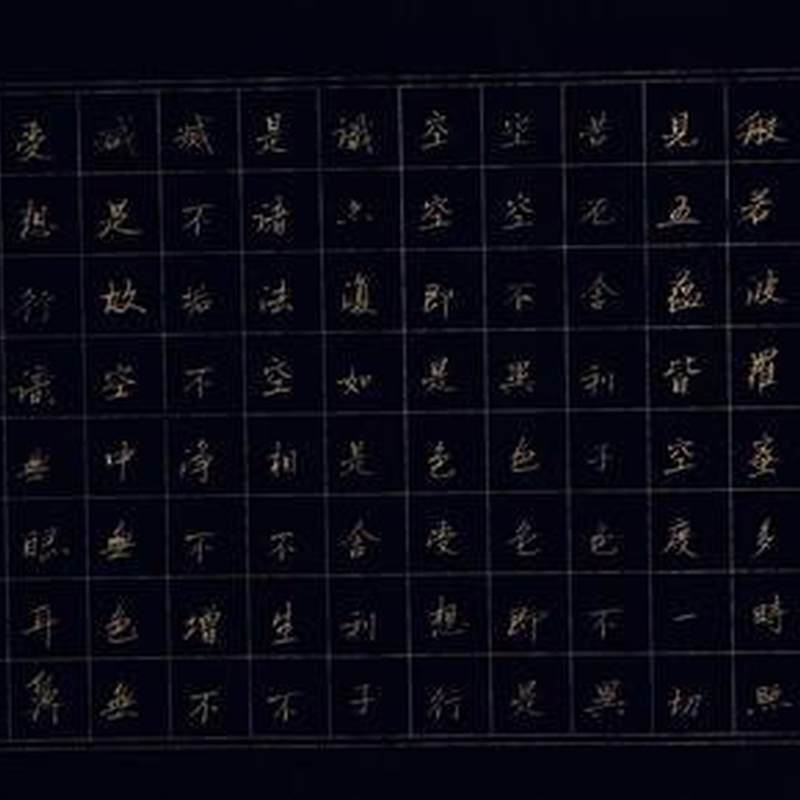 般若波羅蜜多時照
見五蘊皆空度一切
苦厄舍利子色不異
空空不異色色即是
空空即是色受想行
識亦復如是舍利子
是諸法空相不生不
滅不垢不淨不增不
減是故空中無色無
受想行識無眼耳鼻